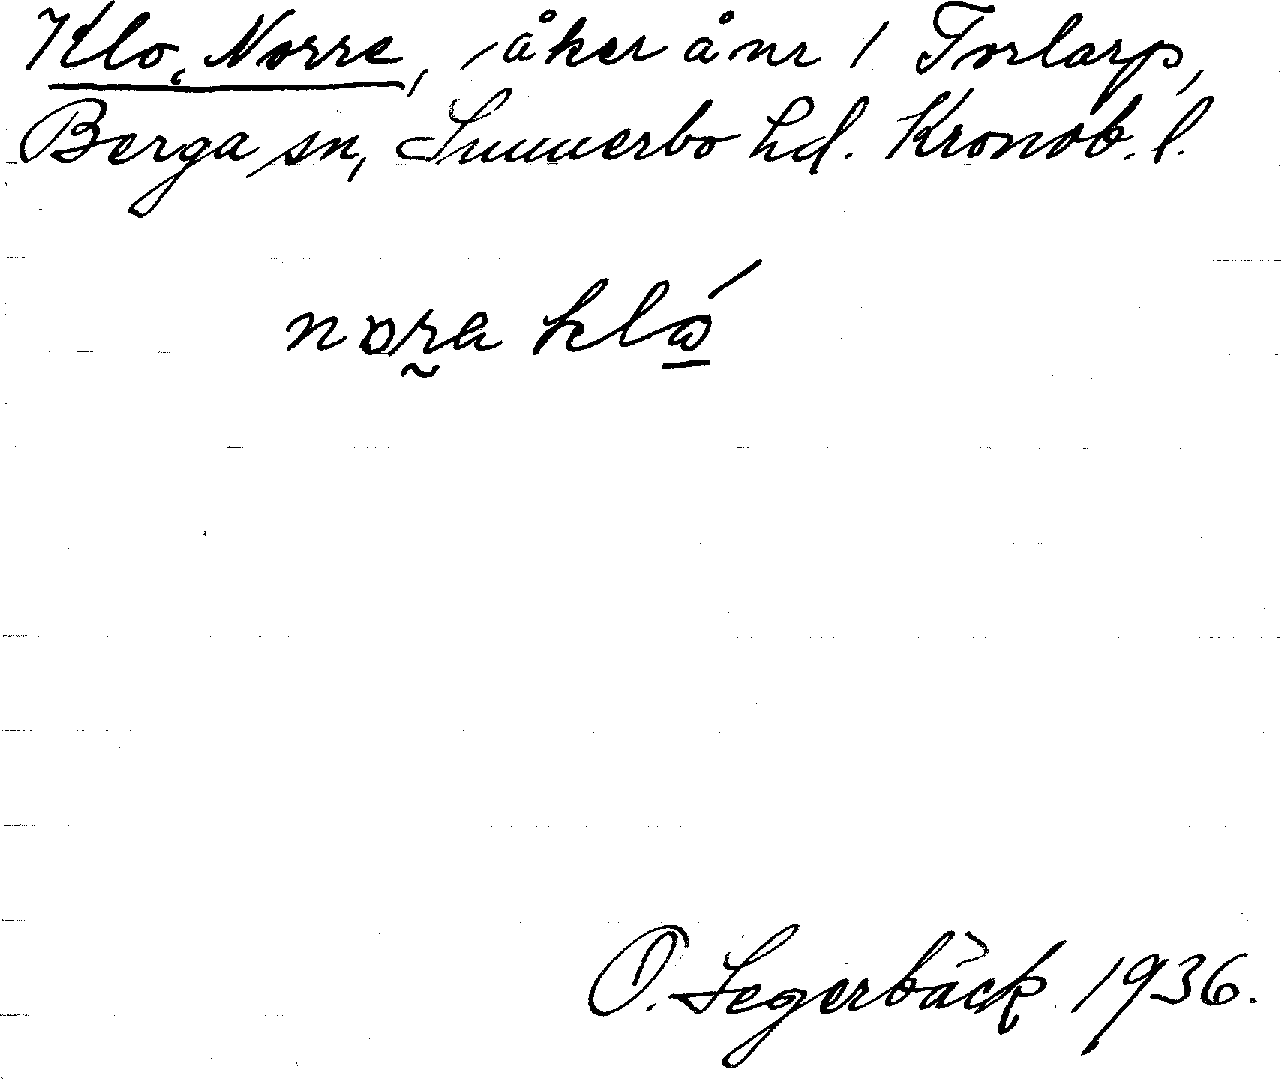 Klo, Norre, åker å nr 1 Torlarp,
Berga sn, Sunnerbo hd. Kronob. l.
nora kló
O. Segerbäck 1936.